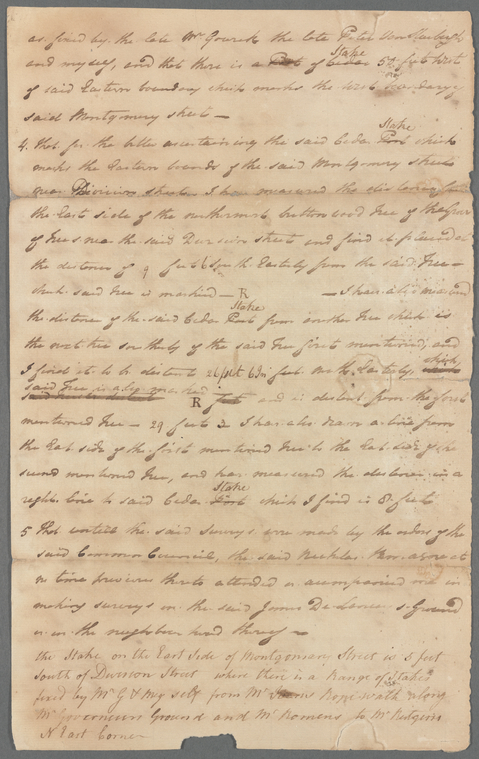 as fixed by the late Mr Gourck the late Peter
and myself, and that there is a Post Stake of Cedar 50 feet West
of said Eastern boundary which marks the West boundary of
said Montgomery street —
4. That for the better ascertaining the said Cedar Post Stake which
marks the Eastern bounds of the said Montgomery street
near Division street I have measured the distance from
the East side of the northermost button wood Tree of the
of Trees near the said Division street and find it placed at
the distance of 9 feet 6 South Easterly from the said Tree —
which said Tree is marked — R — I have also measured
the distance of the said Cedar Post Stake from another Tree which is
the next tree southerly of the said Tree first mentioned, and
I find it to be distant 26 feet 6 In feet North Easterly, which
said Tree is also marked
R feet and is distant from the first
mentioned Tree — 29 feet 2 I have also drawn a line from
the East side of the first mentioned Tree to the East side of the
second mentioned Tree, and have measured the distance in a
right line to said Cedar Post Stake which I find is 8 feet
5 That until the said surveys were made by the orders of the
said Common Council, the said Nicholas
no time previous thereto attended or accompanied me in
making surveys on the said James De Lancey's Ground
or in the neighbourhood thereof —
the Stake on the East Side of Montgomery Street is 6 feet
South of Division Street where there is a Range of Stakes
fixed by Mr G & My self from Mr Rope walk along
Mr Ground and Mr Romens to Mr Rutgers
N East Corner